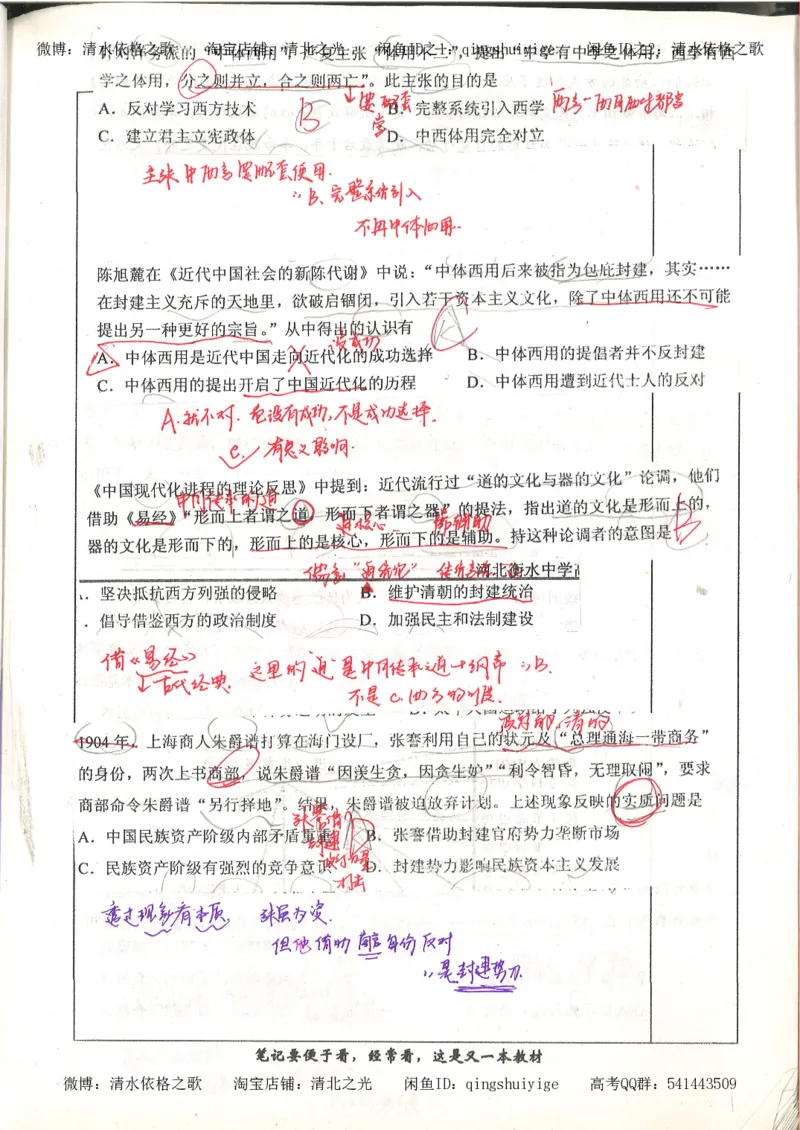 微博：清水依格之歌 淘宝店铺：清北之光 闲鱼ID之1：qingshuiyige 闲鱼ID之2：清水依格之歌
学之体用，分之则并立，合之则两亡”。此主张的目的是
A．反对学习西方技术 B．完整系统引入西学
C．建立君主立宪政体 D．中西体用完全对立
B
∴B、完整系统引入
不再中体西用.
陈旭麓在《近代中国社会的新陈代谢》中说：“中体西用后来被指为包庇封建，其实……
在封建主义充斥的天地里，欲破启锢闭，引入若干资本主义文化，除了中体西用还不可能
提出另一种更好的宗旨。”从中得出的认识有
没成功
A．中体西用是近代中国走向近代化的成功选择 B．中体西用的提倡者并不反封建
C．中体西用的提出开启了中国近代化的历程 D．中体西用遭到近代士人的反对
不是成功选择.
C. 有意义影响
《中国现代化进程的理论反思》中提到：近代流行过“道的文化与器的文化”论调，他们
借助《易经》“形而上者谓之道，形而下者谓之器”的提法，指出道的文化是形而上的，
器的文化是形而下的，形而上的是核心，形而下的是辅助。持这种论调者的意图是
河北衡水中学
．坚决抵抗西方列强的侵略 B．维护清朝的封建统治
．倡导借鉴西方的政治制度 D．加强民主和法制建设
借《易经》
古代经典
1904 年，上海商人朱爵谱打算在海门设厂，张謇利用自己的状元及“总理通海一带商务”
的身份，两次上书商部，说朱爵谱“因羡生贪，因贪生妒”“利令智昏，无理取闹”，要求
商部命令朱爵谱“另行择地”。结果，朱爵谱被迫放弃计划。上述现象反映的实质问题是
A．中国民族资产阶级内部矛盾重重 B．张謇借助封建官府势力垄断市场
C．民族资产阶级有强烈的竞争意识 D．封建势力影响民族资本主义发展
透过现象看本质
但他借助官身份反对
∴是封建势力.
笔记要便于看，经常看，这是又一本教材
微博：清水依格之歌 淘宝店铺：清北之光 闲鱼ID：qingshuiyige 高考QQ群：541443509